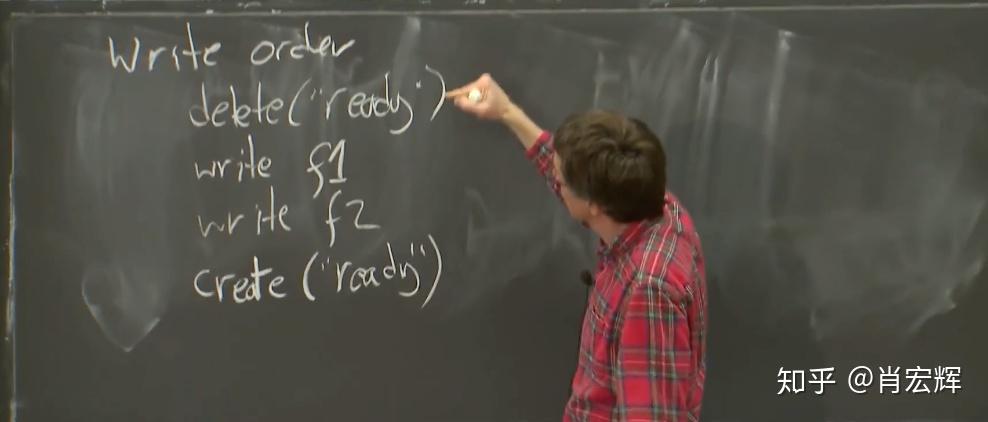 Write order
delete("ready")
write f1
write f2
create("ready")
知乎 @肖宏辉